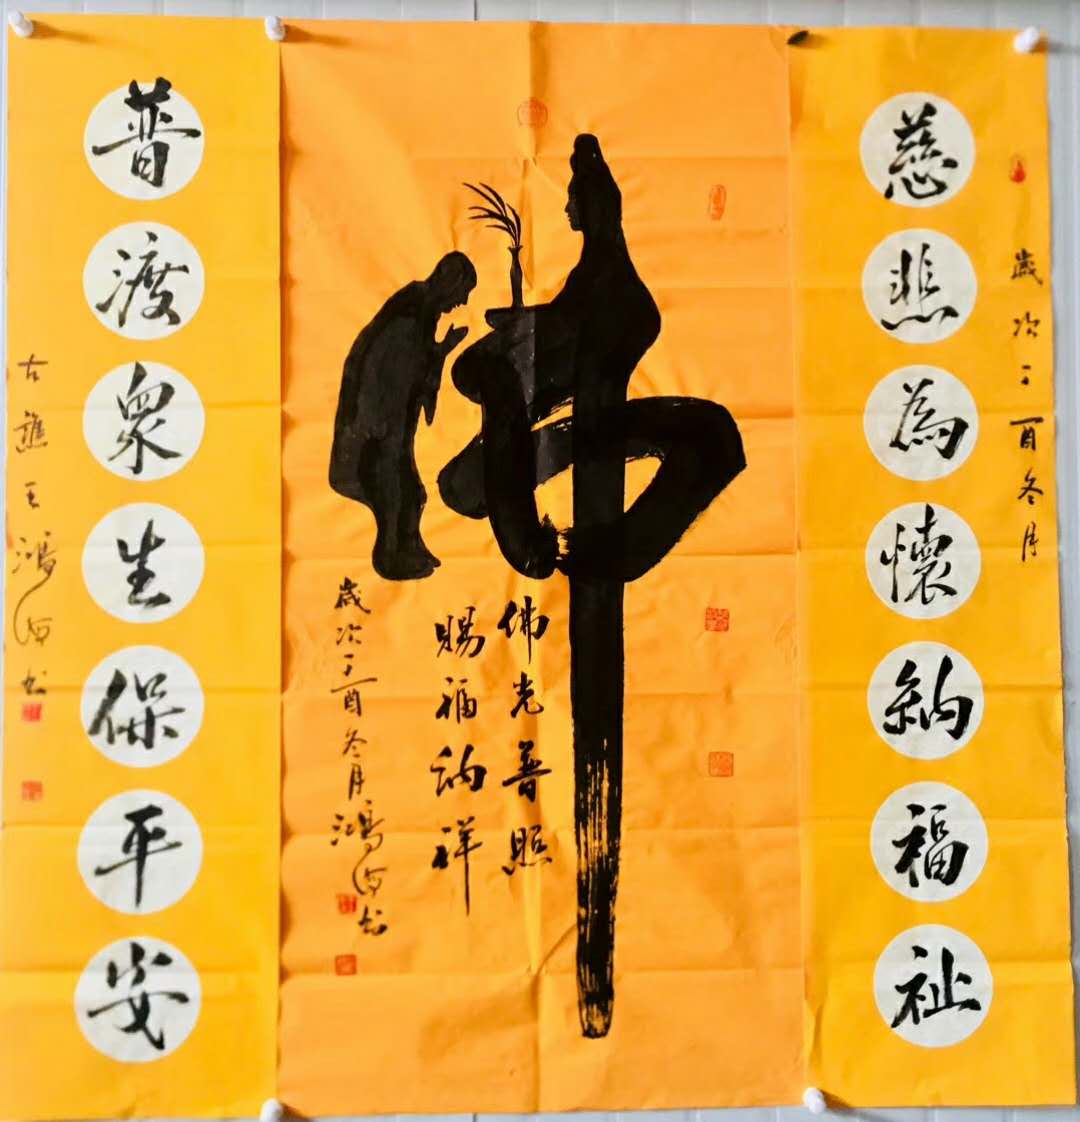 慈悲為懷納福祉
歲次丁酉冬月
佛
佛光普照
賜福納祥
歲次丁酉冬月鴻海书
普渡眾生保平安
古譙王鴻海书